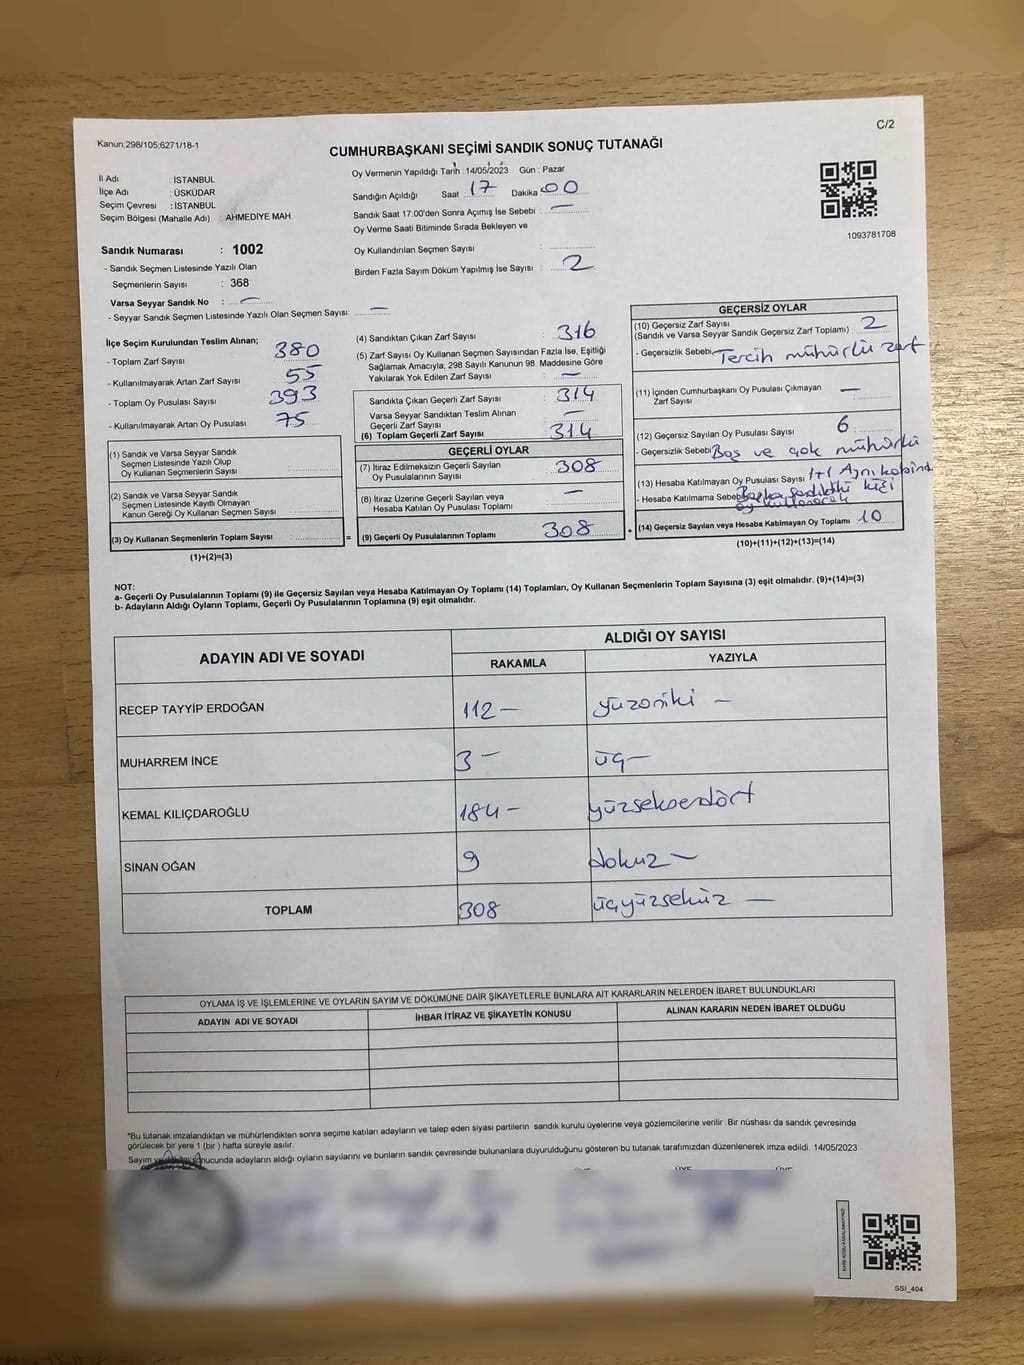 Kanun;298/105,6271/18-1
C/2
CUMHURBAŞKANI SEÇİMİ SANDIK SONUÇ TUTANAĞI
İl Adı : İSTANBUL
İlçe Adı : ÜSKÜDAR
Seçim Çevresi : İSTANBUL
Seçim Bölgesi (Mahalle Adı) : AHMEDİYE MAH.
Oy Vermenin Yapıldığı Tarih :14/05/2023 Gün : Pazar
Sandığın Açıldığı Saat : 17 Dakika : 00
Sandık Saat 17:00'den Sonra Açımış İse Sebebi : —
Oy Verme Saati Bitiminde Sırada Bekleyen ve
Oy Kullandırılan Seçmen Sayısı :
Birden Fazla Sayım Döküm Yapılmış İse Sayısı : 2
1093781708
Sandık Numarası : 1002
- Sandık Seçmen Listesinde Yazılı Olan
Seçmenlerin Sayısı : 368
Varsa Seyyar Sandık No : —
- Seyyar Sandık Seçmen Listesinde Yazılı Olan Seçmen Sayısı: —
İlçe Seçim Kurulundan Teslim Alınan;
- Toplam Zarf Sayısı : 380
- Kullanılmayarak Artan Zarf Sayısı : 55
- Toplam Oy Pusulası Sayısı : 393
- Kullanılmayarak Artan Oy Pusulası : 75
(1) Sandık ve Varsa Seyyar Sandık
Seçmen Listesinde Yazılı Olup
Oy Kullanan Seçmenlerin Sayısı :
(2) Sandık ve Varsa Seyyar Sandık
Seçmen Listesinde Kayıtlı Olmayan
Kanun Gereği Oy Kullanan Seçmen Sayısı :
(3) Oy Kullanan Seçmenlerin Toplam Sayısı : =
(1)+(2)=(3)
(4) Sandıktan Çıkan Zarf Sayısı : 316
(5) Zarf Sayısı Oy Kullanan Seçmen Sayısından Fazla İse, Eşitliği
Sağlamak Amacıyla; 298 Sayılı Kanunun 98. Maddesine Göre
Yakılarak Yok Edilen Zarf Sayısı : —
Sandıkta Çıkan Geçerli Zarf Sayısı : 314
Varsa Seyyar Sandıktan Teslim Alınan
Geçerli Zarf Sayısı : —
(6) Toplam Geçerli Zarf Sayısı : 314
GEÇERLİ OYLAR
(7) İtiraz Edilmeksizin Geçerli Sayılan
Oy Pusulalarının Sayısı : 308
(8) İtiraz Üzerine Geçerli Sayılan veya
Hesaba Katılan Oy Pusulası Toplamı : —
(9) Geçerli Oy Pusulalarının Toplamı : 308 +
GEÇERSİZ OYLAR
(10) Geçersiz Zarf Sayısı
(Sandık ve Varsa Seyyar Sandık Geçersiz Zarf Toplamı) : 2
- Geçersizlik Sebebi: Tercih mühürlü zarf
(11) İçinden Cumhurbaşkanı Oy Pusulası Çıkmayan
Zarf Sayısı : —
(12) Geçersiz Sayılan Oy Pusulası Sayısı : 6
- Geçersizlik Sebebi: Boş ve çok mühürlü
(13) Hesaba Katılmayan Oy Pusulası Sayısı : 1+1 Aynı kabinde
- Hesaba Katılmama Sebebi: Başka sandıktaki kişi
oy kullanacak
(14) Geçersiz Sayılan veya Hesaba Katılmayan Oy Toplamı : 10
(10)+(11)+(12)+(13)=(14)
NOT:
a- Geçerli Oy Pusulalarının Toplamı (9) ile Geçersiz Sayılan veya Hesaba Katılmayan Oy Toplamı (14) Toplamları, Oy Kullanan Seçmenlerin Toplam Sayısına (3) eşit olmalıdır. (9)+(14)=(3)
b- Adayların Aldığı Oyların Toplamı, Geçerli Oy Pusulalarının Toplamına (9) eşit olmalıdır.
ADAYIN ADI VE SOYADI
ALDIĞI OY SAYISI
RAKAMLA YAZIYLA
RECEP TAYYİP ERDOĞAN 112 — yüzoniki —
MUHARREM İNCE 3 — üç —
KEMAL KILIÇDAROĞLU 184 — yüzseksendört
SİNAN OĞAN 9 dokuz —
TOPLAM 308 üçyüzsekiz —
OYLAMA İŞ VE İŞLEMLERİNE VE OYLARIN SAYIM VE DÖKÜMÜNE DAİR ŞİKAYETLERLE BUNLARA AİT KARARLARIN NELERDEN İBARET BULUNDUKLARI
ADAYIN ADI VE SOYADI İHBAR İTİRAZ VE ŞİKAYETİN KONUSU ALINAN KARARIN NEDEN İBARET OLDUĞU
*Bu tutanak imzalandıktan ve mühürlendikten sonra seçime katılan adayların ve talep eden siyasi partilerin sandık kurulu üyelerine veya gözlemcilerine verilir .Bir nüshası da sandık çevresinde
görülecek bir yere 1 (bir ) hafta süreyle asılır.
Sayım ve sonucunda adayların aldığı oyların sayılarını ve bunların sandık çevresinde bulunanlara duyurulduğunu gösteren bu tutanak tarafımızdan düzenlenerek imza edildi. 14/05/2023
SSİ_404